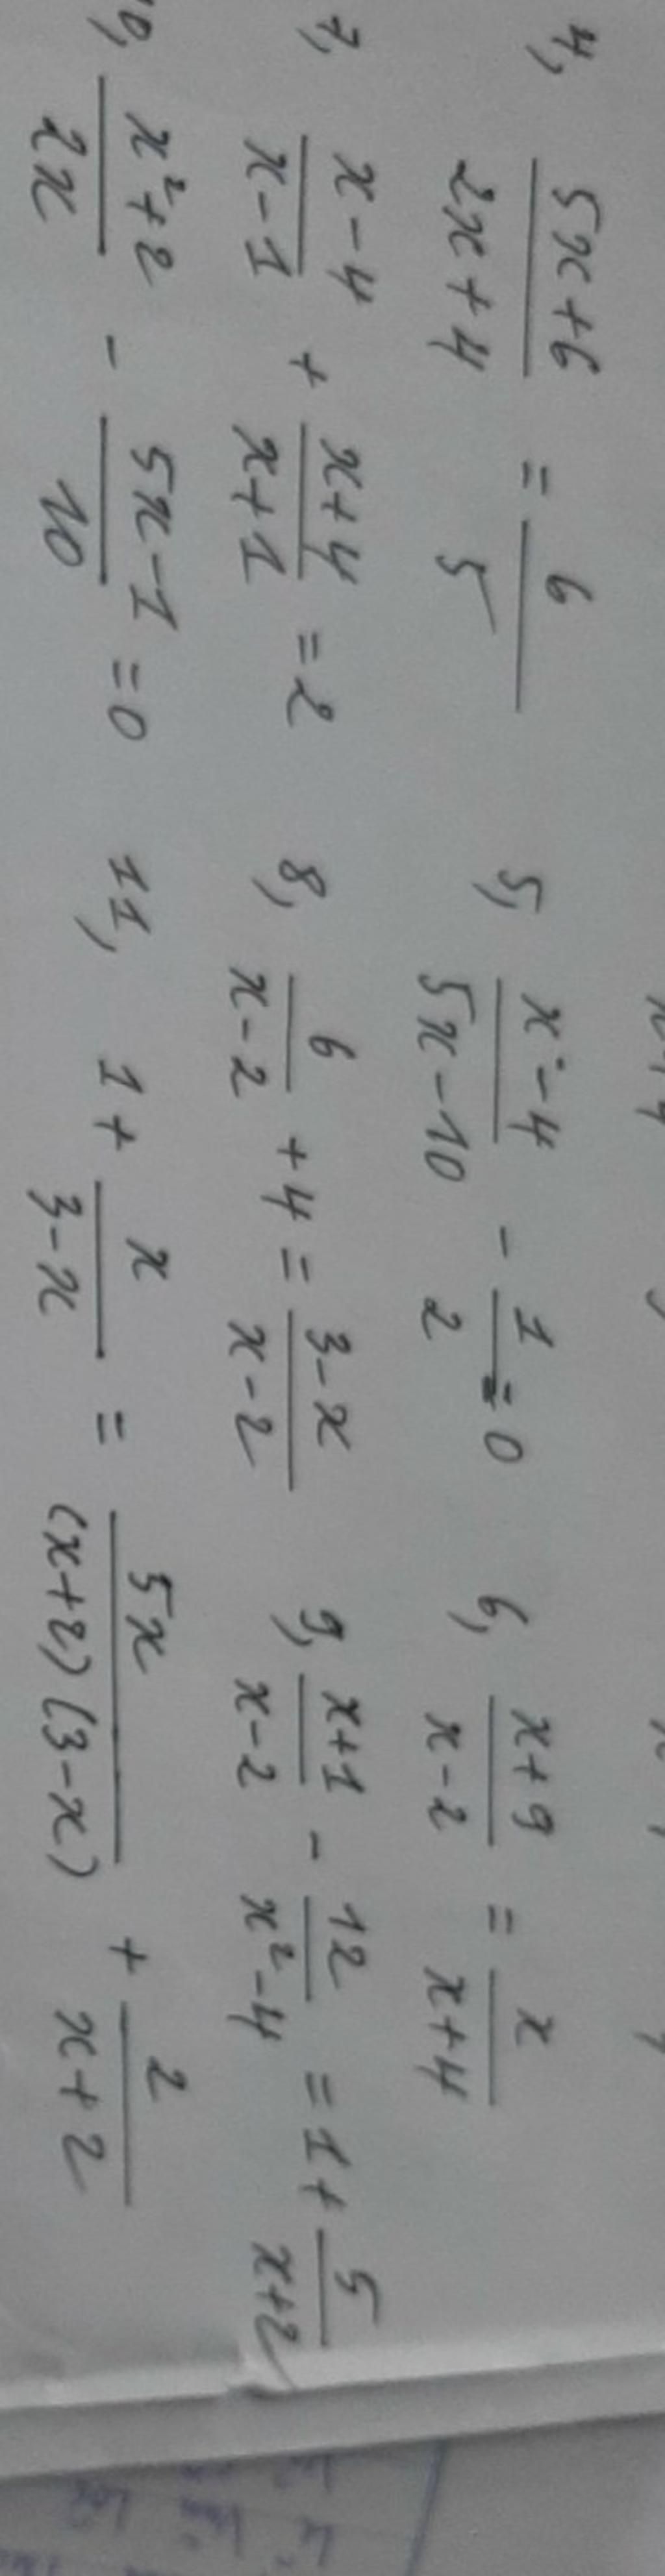 4, (5x+6)/(2x+4) = 6/5 5, (x²-4)/(5x-10) - 1/2 = 0 6, (x+9)/(x-2) = x/(x+4)
7, (x-4)/(x-1) + (x+4)/(x+1) = 2 8, 6/(x-2) + 4 = (3-x)/(x-2) 9, (x+1)/(x-2) - 12/(x²-4) = 1 + 5/(x+2)
(x²+2)/2x - (5x-1)/10 = 0 11, 1 + x/(3-x) = 5x/((x+2)(3-x)) + 2/(x+2)